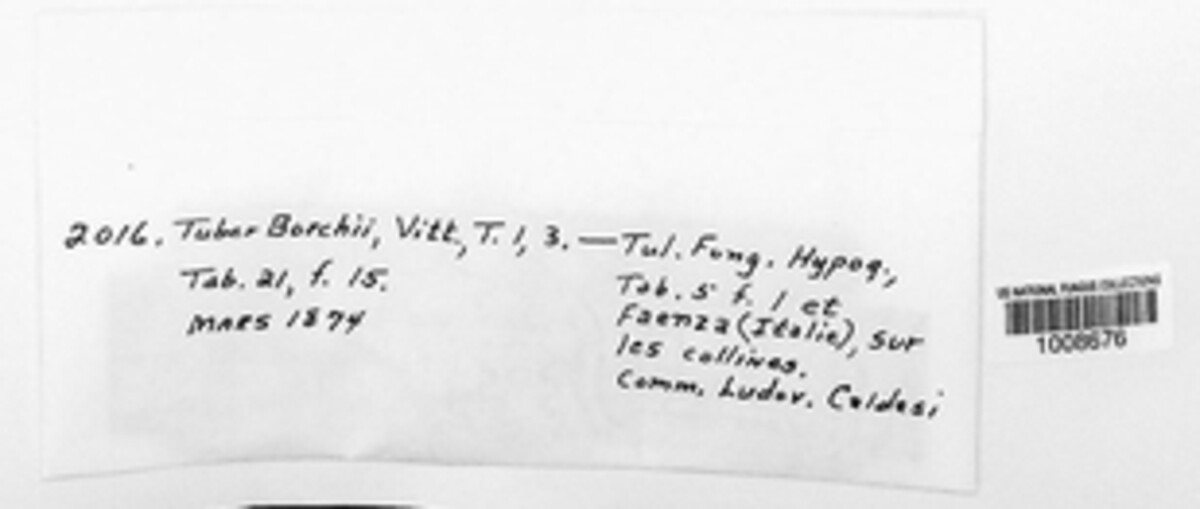 2016. Tuber Borchii, Vitt, T. 1, 3. — Tul. Fung. Hypog.,
Tab. 21, f. 15.
Tab. 5 f. 1 et
MARS 1874
Faenza (Italie), sur
les collines.
Comm. Ludov. Caldesi
US NATIONAL FUNGUS COLLECTIONS
1008676